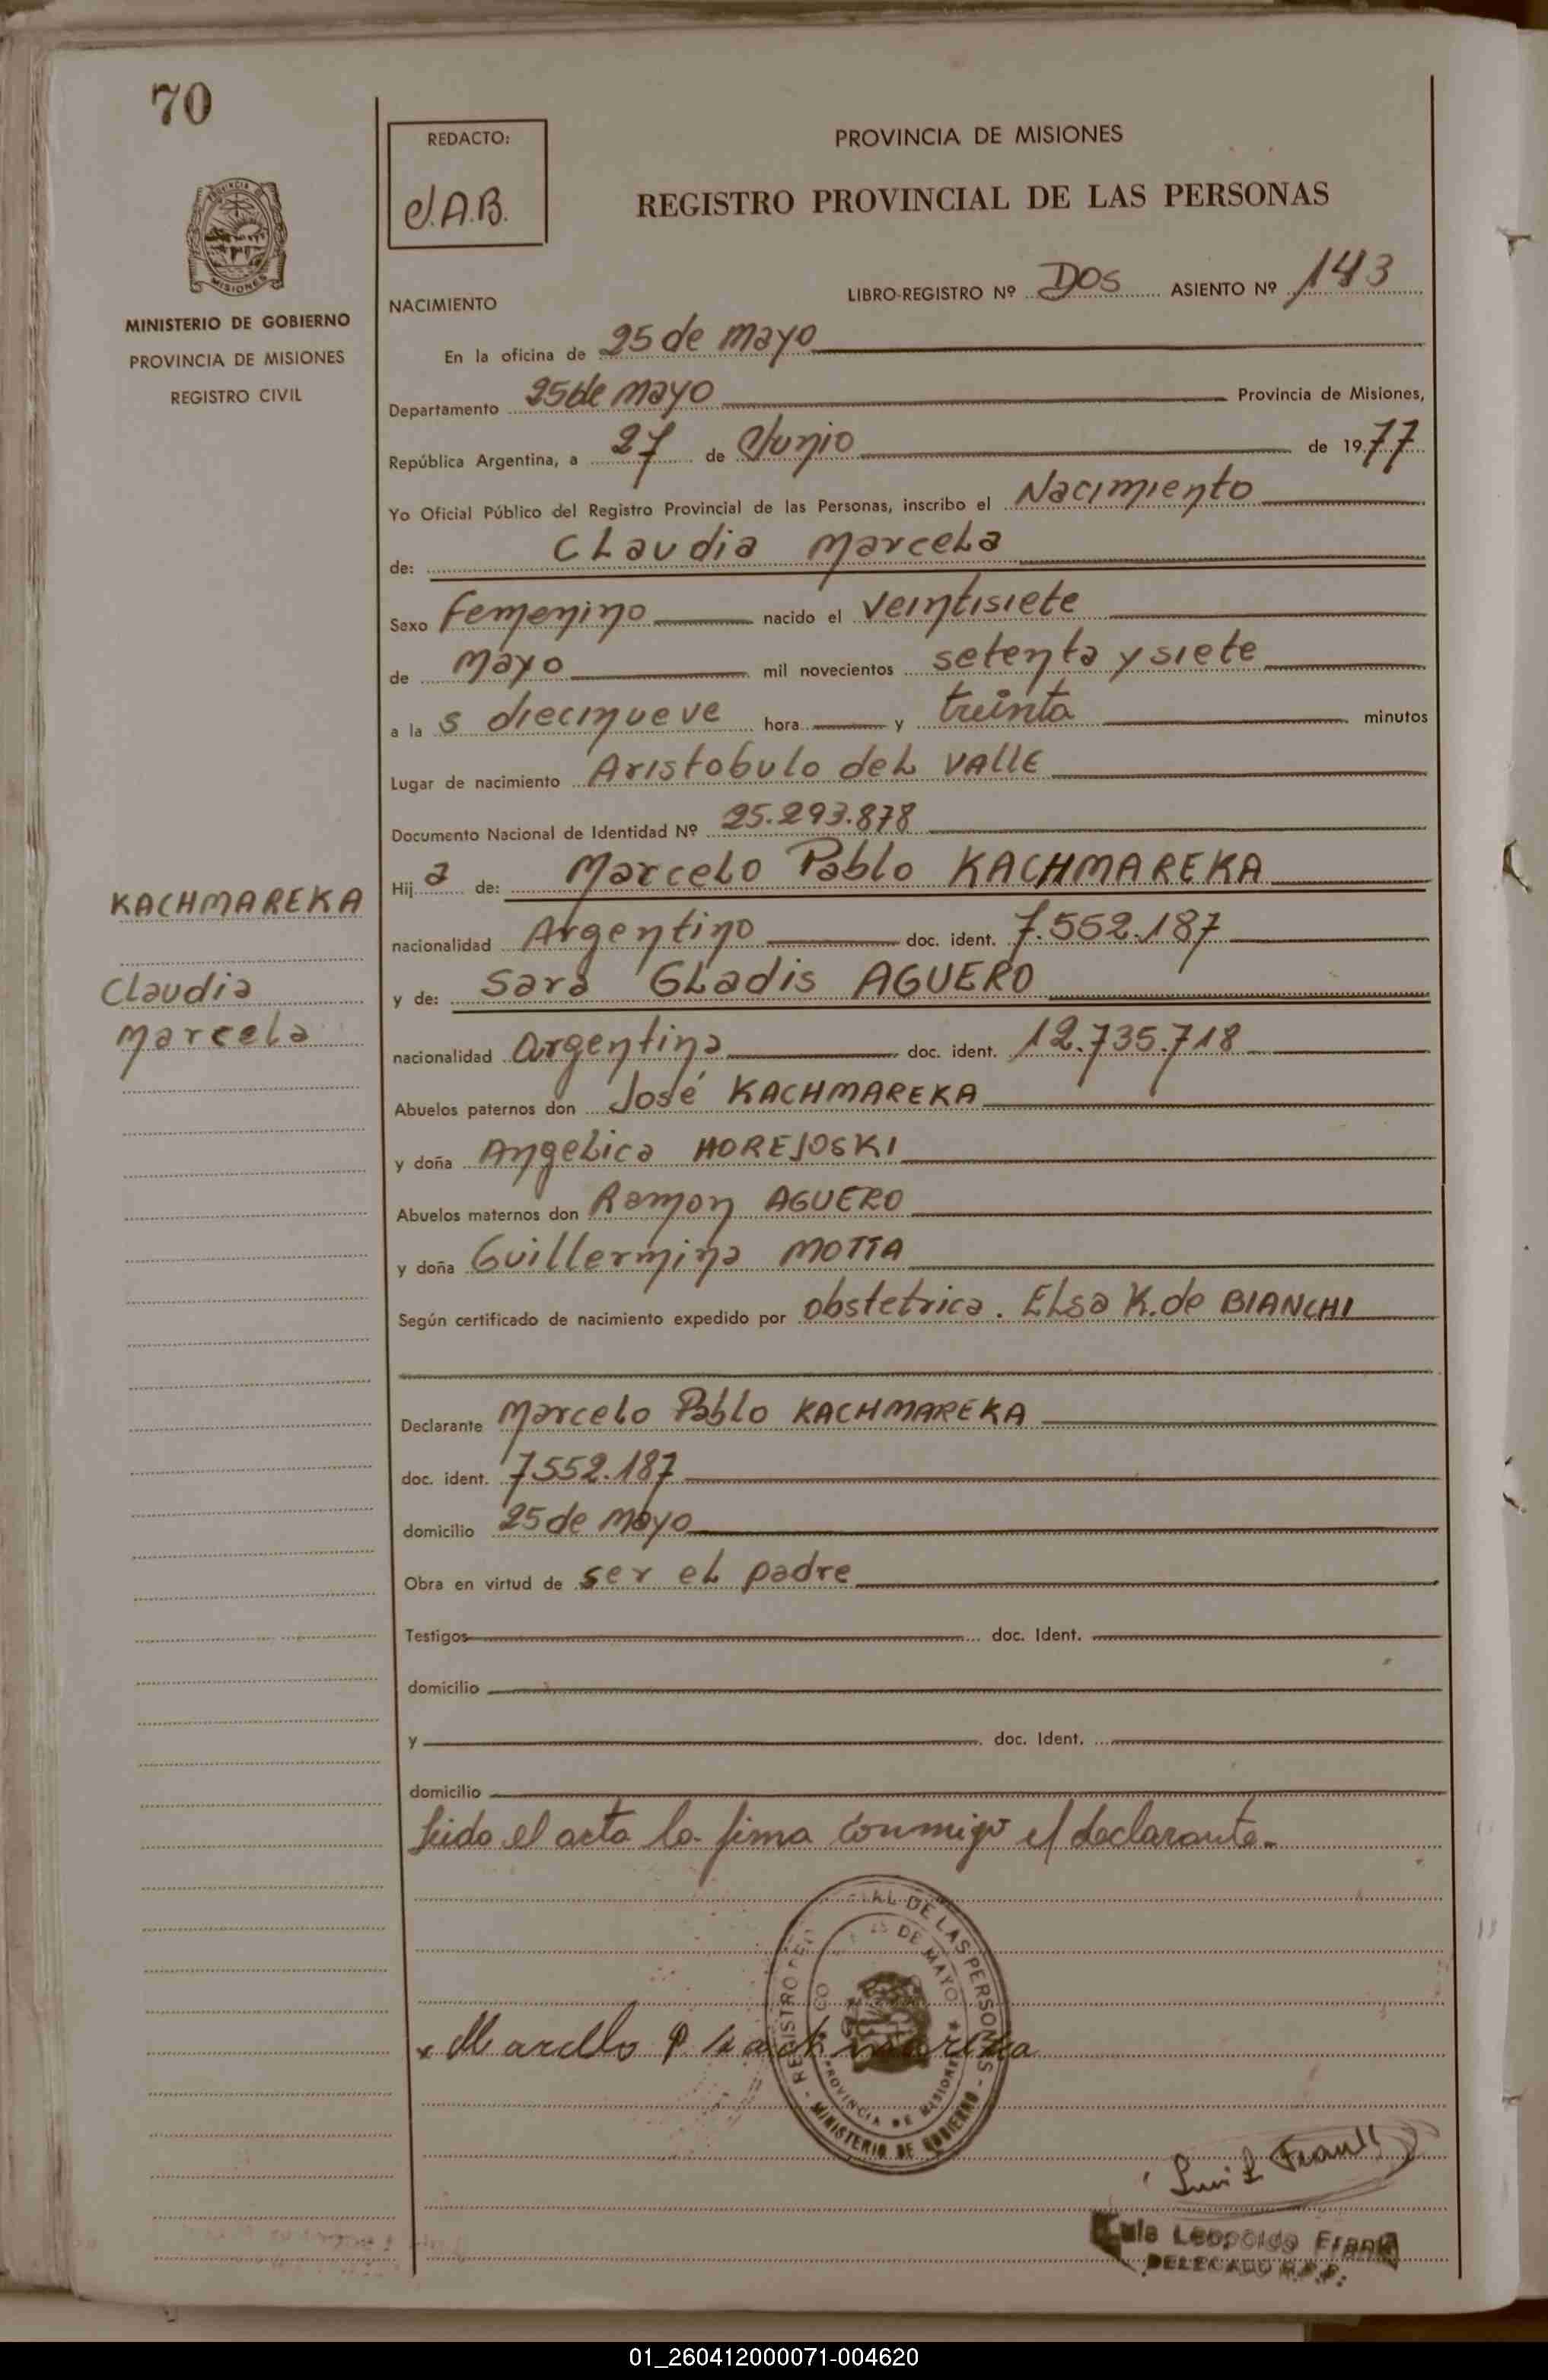 70
REDACTO:
J.A.B.
PROVINCIA DE MISIONES
REGISTRO PROVINCIAL DE LAS PERSONAS
PROVINCIA DE
MISIONES
MINISTERIO DE GOBIERNO
PROVINCIA DE MISIONES
REGISTRO CIVIL
LIBRO-REGISTRO Nº Dos ASIENTO Nº 143
NACIMIENTO
En la oficina de 25 de mayo
Departamento 25 de mayo Provincia de Misiones,
República Argentina, a 27 de Junio de 1977
Yo Oficial Público del Registro Provincial de las Personas, inscribo el Nacimiento
de: Claudia Marcela
Sexo femenino nacido el veintisiete
de mayo mil novecientos setenta y siete
a la s diecinueve hora y treinta minutos
Lugar de nacimiento Aristobulo del Valle
Documento Nacional de Identidad Nº 25.293.878
Hij a de: Marcelo Pablo KACHMAREKA
nacionalidad Argentino doc. ident. 7.552.187
y de: Sara Gladis AGUERO
nacionalidad argentina doc. ident. 12.735.718
Abuelos paternos don José KACHMAREKA
y doña Angelica HOREJOSKI
Abuelos maternos don Ramon AGUERO
y doña Guillermina MOTTA
Según certificado de nacimiento expedido por obstetrica. Elsa K. de BIANCHI
Declarante Marcelo Pablo KACHMAREKA
doc. ident. 7552.187
domicilio 25 de mayo
Obra en virtud de ser el padre
Testigos doc. Ident.
domicilio
y doc. Ident.
domicilio
Leido el acta la firma conmigo el declarante.-
KACHMAREKA
Claudia
Marcela
REGISTRO DE LAS PERSONAS - MINISTERIO DE GOBIERNO -
25 DE MAYO * PROVINCIA DE MISIONES *
x Marcelo P Kachmareka
Luis L Frank
Luis Leopoldo Frank
DELEGADO R.P.P.
01_260412000071-004620